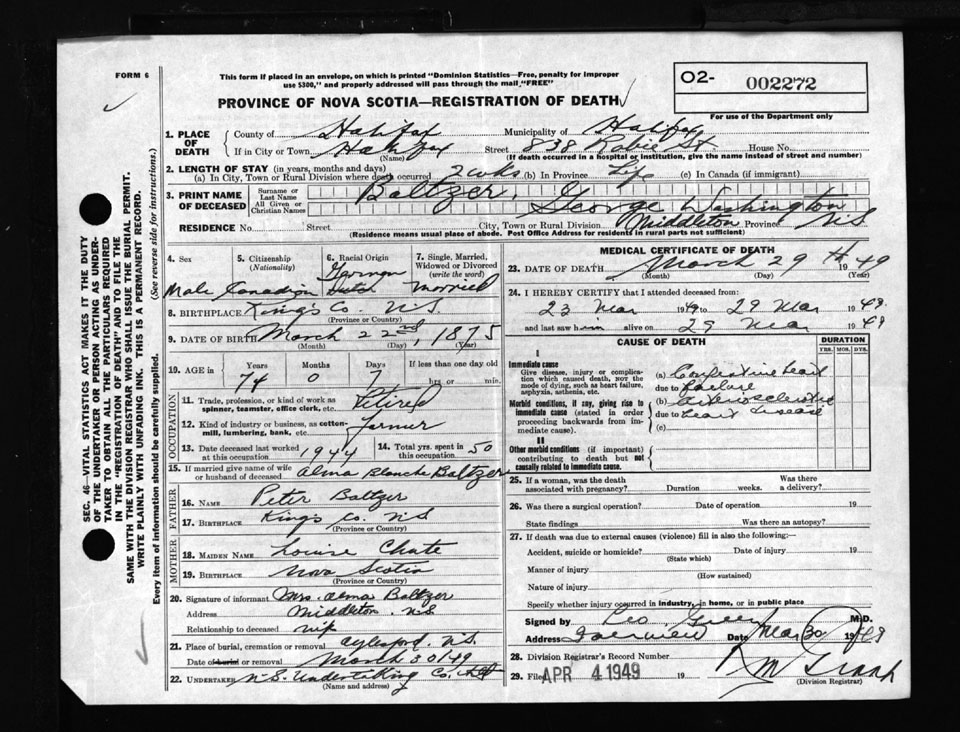 FORM 6
This form if placed in an envelope, on which is printed "Dominion Statistics—Free, penalty for improper
use $300," and properly addressed will pass through the mail "FREE"
O2- 002272
PROVINCE OF NOVA SCOTIA—REGISTRATION OF DEATH
For use of the Department only
1. PLACE OF DEATH
County of Halifax Municipality of Halifax
If in City or Town Halifax Street 838 Robie St House No.
(Name) (If death occurred in a hospital or institution, give the name instead of street and number)
2. LENGTH OF STAY (in years, months and days)
(a) In City, Town or Rural Division where death occurred 2 wks (b) In Province Life (c) In Canada (if immigrant)
3. PRINT NAME OF DECEASED
Surname or Last Name Baltzer,
All Given or Christian Names George Washington
RESIDENCE No. Street City, Town or Rural Division Middleton Province N.S
(Residence means usual place of abode. Post Office Address for residents in rural parts not sufficient)
4. Sex Male
5. Citizenship (Nationality) Canadian
6. Racial Origin German Dutch
7. Single, Married, Widowed or Divorced (write the word) Married
8. BIRTHPLACE Kings Co. N.S.
(Province or Country)
9. DATE OF BIRTH March 22nd, 1875
(Month) (Day) (Year)
10. AGE in Years Months Days If less than one day old
74 0 7 hrs or min.
OCCUPATION
11. Trade, profession, or kind of work as spinner, teamster, office clerk, etc. Retired
12. Kind of industry or business, as cotton-mill, lumbering, bank, etc. farmer
13. Date deceased last worked at this occupation 1944
14. Total yrs. spent in this occupation 50
15. If married give name of wife or husband of deceased Alma Blanche Baltzer
FATHER
16. NAME Peter Baltzer
17. BIRTHPLACE Kings Co. N.S
(Province or Country)
MOTHER
18. MAIDEN NAME Louise Chute
19. BIRTHPLACE Nova Scotia
(Province or Country)
20. Signature of informant Mrs. Alma Baltzer
Address Middleton N.S
Relationship to deceased wife
21. Place of burial, cremation or removal Aylesford, N.S.
Date of burial or removal March 30/49
22. UNDERTAKER N.S. Undertaking Co. Ltd
(Name and address)
MEDICAL CERTIFICATE OF DEATH
23. DATE OF DEATH March 29th 1949
(Month) (Day) (Year)
24. I HEREBY CERTIFY that I attended deceased from:
23 Mar 1949 to 29 Mar 1949
and last saw him alive on 29 Mar 1949
CAUSE OF DEATH DURATION
YRS. MOS. DYS.
I
Immediate cause
Give disease, injury or complication which caused death, not the mode of dying, such as heart failure, asphyxia, asthenia, etc.
(a) Congestive heart
due to failure
Morbid conditions, if any, giving rise to immediate cause (stated in order proceeding backwards from immediate cause).
(b) arteriosclerotic
due to heart disease
(c)
II
Other morbid conditions (if important) contributing to death but not causally related to immediate cause.
25. If a woman, was the death associated with pregnancy? Duration weeks. Was there a delivery?
26. Was there a surgical operation? Date of operation 19
State findings Was there an autopsy?
27. If death was due to external causes (violence) fill in also the following:—
Accident, suicide or homicide? Date of injury 19
(State which)
Manner of injury
(How sustained)
Nature of injury
Specify whether injury occurred in industry, in home, or in public place
Signed by Leo Green M.D.
Address Fairview Date Mar 30 1949
28. Division Registrar's Record Number
29. Filed APR 4 1949 19
(Division Registrar)
SEC. 46—VITAL STATISTICS ACT MAKES IT THE DUTY
OF THE UNDERTAKER OR PERSON ACTING AS UNDER-
TAKER TO OBTAIN ALL THE PARTICULARS REQUIRED
IN THE "REGISTRATION OF DEATH" AND TO FILE THE
SAME WITH THE DIVISION REGISTRAR WHO SHALL ISSUE THE BURIAL PERMIT.
WRITE PLAINLY WITH UNFADING INK. THIS IS A PERMANENT RECORD.
Every item of information should be carefully supplied. (See reverse side for instructions.)